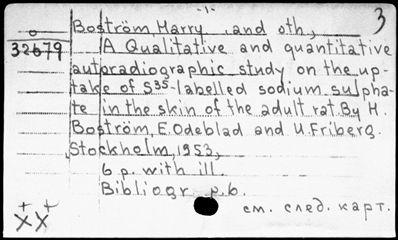 -1-
3
Boström, Harry and oth.,
32679
A Qualitative and quantitative
autoradiographic study on the up-
take of S35-labelled sodium sulpha-
te in the skin of the adult rat. By H.
Boström, E. Odeblad and U. Friberg.
Stockholm, 1953,
6 p. with ill.
Bibliogr p. 6.
см. след. карт.
++
XX